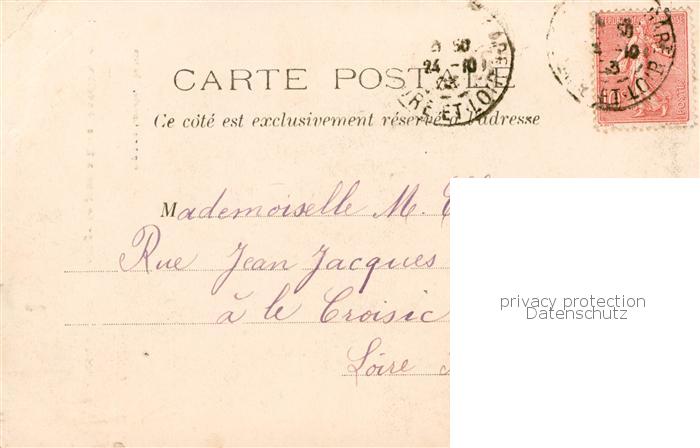 CARTE POSTALE
Ce côté est exclusivement réservé à l'adresse
24 -10
ET-LOIR
10
ET-LOIR
Mademoiselle M.
Rue Jean Jacques
à le Croisic
Loire
privacy protection
Datenschutz